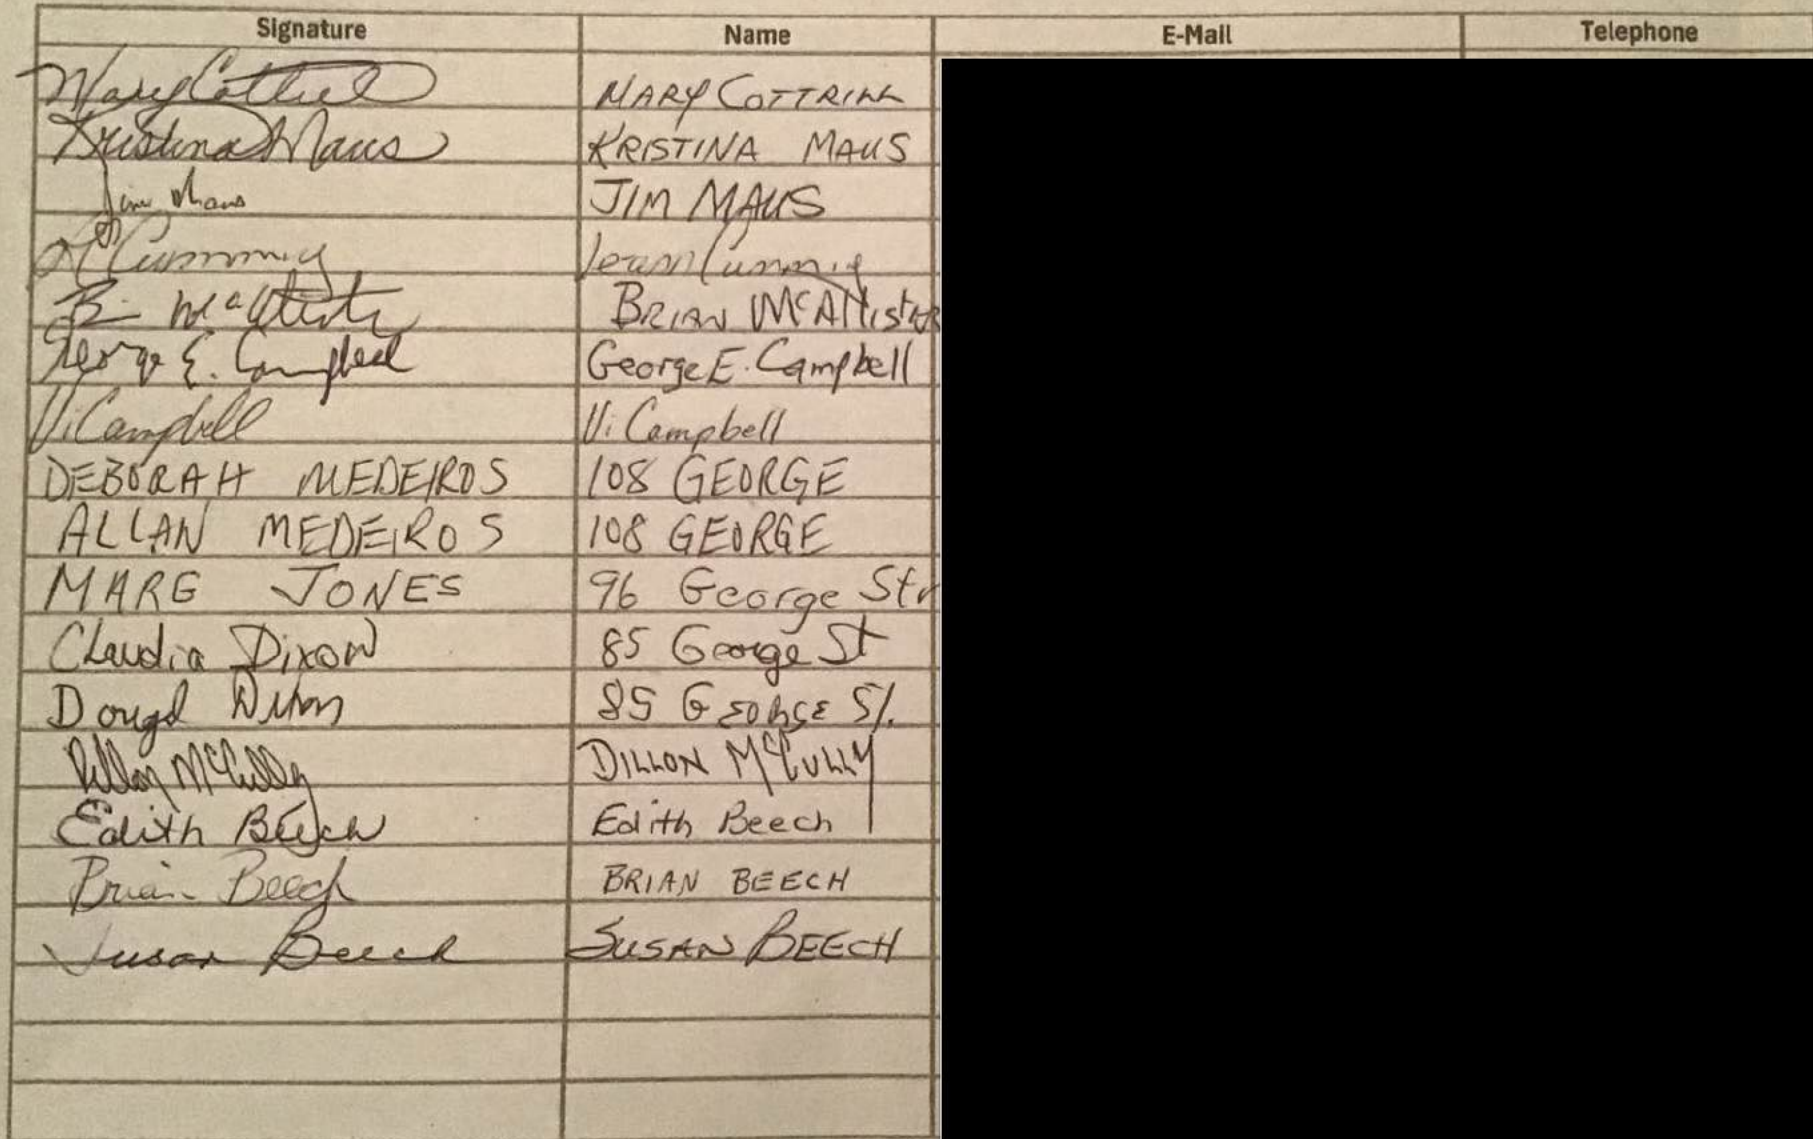 Signature Name E-Mail Telephone
Mary Cottrill MARY COTTRILL
Kristina Maus KRISTINA MAUS
Jim Maus JIM MAUS
Cummig Joann Cummig
B McAllister BRIAN McAllister
George E. Campbell George E. Campbell
Vi Campbell Vi Campbell
DEBORAH MEDEIROS 108 GEORGE
ALLAN MEDEIROS 108 GEORGE
MARG JONES 96 George Str
Claudia Dixon 85 George St
Dixon 85 GEORGE St.
Dillon McCully DILLON McCULLY
Edith Beech Edith Beech
Brian Beech BRIAN BEECH
Susan Beech SUSAN BEECH